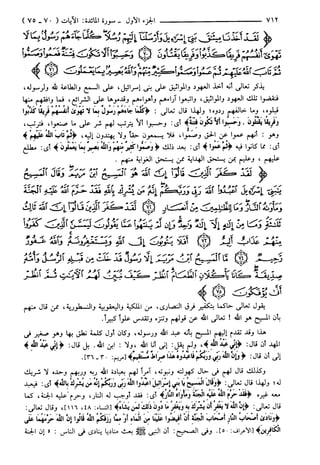 ٧١٢ الجزء الأول - سورة المائدة: الآيات (٧٠ - ٧٥)
لَقَدْ أَخَذْنَا مِيثَاقَ بَنِي إِسْرَائِيلَ وَأَرْسَلْنَا إِلَيْهِمْ رُسُلًا كُلَّمَا جَاءَهُمْ رَسُولٌ بِمَا لَا تَهْوَى
أَنْفُسُهُمْ فَرِيقًا كَذَّبُوا وَفَرِيقًا يَقْتُلُونَ ﴿٧٠﴾ وَحَسِبُوا أَلَّا تَكُونَ فِتْنَةٌ فَعَمُوا وَصَمُّوا
ثُمَّ تَابَ اللَّهُ عَلَيْهِمْ ثُمَّ عَمُوا وَصَمُّوا كَثِيرٌ مِنْهُمْ وَاللَّهُ بَصِيرٌ بِمَا يَعْمَلُونَ ﴿٧١﴾
يذكر تعالى أنه أخذ العهود والمواثيق على بني إسرائيل، على السمع والطاعة لله ولرسوله،
فنقضوا تلك العهود والمواثيق، واتبعوا آراءهم وأهواءهم وقدموها على الشرائع، فما وافقهم منها
قبلوه، وما خالفهم ردوه؛ ولهذا قال تعالى: ﴿كُلَّمَا جَاءَهُمْ رَسُولٌ بِمَا لَا تَهْوَى أَنْفُسُهُمْ فَرِيقًا كَذَّبُوا
وَفَرِيقًا يَقْتُلُونَ. وَحَسِبُوا أَلَّا تَكُونَ فِتْنَةٌ﴾ أي: وحسبوا ألا يترتب لهم شر على ما صنعوا، فترتب،
وهو: أنهم عموا عن الحق وصموا، فلا يسمعون حقًا ولا يهتدون إليه، ﴿ثُمَّ تَابَ اللَّهُ عَلَيْهِمْ﴾
أي: مما كانوا فيه ﴿ثُمَّ عَمُوا﴾ أي: بعد ذلك ﴿وَصَمُّوا كَثِيرٌ مِنْهُمْ وَاللَّهُ بَصِيرٌ بِمَا يَعْمَلُونَ﴾ أي: مطلع
عليهم، وعليم بمن يستحق الهداية ممن يستحق الغواية منهم.
لَقَدْ كَفَرَ الَّذِينَ قَالُوا إِنَّ اللَّهَ هُوَ الْمَسِيحُ ابْنُ مَرْيَمَ وَقَالَ الْمَسِيحُ
يَا بَنِي إِسْرَائِيلَ اعْبُدُوا اللَّهَ رَبِّي وَرَبَّكُمْ إِنَّهُ مَنْ يُشْرِكْ بِاللَّهِ فَقَدْ حَرَّمَ اللَّهُ عَلَيْهِ الْجَنَّةَ
وَمَأْوَاهُ النَّارُ وَمَا لِلظَّالِمِينَ مِنْ أَنْصَارٍ ﴿٧٢﴾ لَقَدْ كَفَرَ الَّذِينَ قَالُوا إِنَّ اللَّهَ ثَالِثُ ثَلَاثَةٍ
وَمَا مِنْ إِلَهٍ إِلَّا إِلَهٌ وَاحِدٌ وَإِنْ لَمْ يَنْتَهُوا عَمَّا يَقُولُونَ لَيَمَسَّنَّ الَّذِينَ كَفَرُوا
مِنْهُمْ عَذَابٌ أَلِيمٌ ﴿٧٣﴾ أَفَلَا يَتُوبُونَ إِلَى اللَّهِ وَيَسْتَغْفِرُونَهُ وَاللَّهُ غَفُورٌ
رَحِيمٌ ﴿٧٤﴾ مَا الْمَسِيحُ ابْنُ مَرْيَمَ إِلَّا رَسُولٌ قَدْ خَلَتْ مِنْ قَبْلِهِ الرُّسُلُ وَأُمُّهُ
صِدِّيقَةٌ كَانَا يَأْكُلَانِ الطَّعَامَ انْظُرْ كَيْفَ نُبَيِّنُ لَهُمُ الْآيَاتِ ثُمَّ انْظُرْ
أَنَّى يُؤْفَكُونَ ﴿٧٥﴾
يقول تعالى حاكما بتكفير فرق النصارى، من الملكية واليعقوبية والنسطورية، ممن قال منهم
بأن المسيح هو الله؛ تعالى الله عن قولهم وتنزه وتقدس علوًا كبيرًا.
هذا وقد تقدم إليهم المسيح بأنه عبد الله ورسوله، وكان أول كلمة نطق بها وهو صغير في
المهد أن قال: ﴿إِنِّي عَبْدُ اللَّهِ﴾، ولم يقل: إني أنا الله، ولا: ابن الله. بل قال: ﴿إِنِّي عَبْدُ اللَّهِ﴾
إلى أن قال: ﴿وَإِنَّ اللَّهَ رَبِّي وَرَبُّكُمْ فَاعْبُدُوهُ هَذَا صِرَاطٌ مُسْتَقِيمٌ﴾ [مريم: ٣٠ ـ ٣٦].
وكذلك قال لهم في حال كهولته ونبوته، آمرًا لهم بعبادة الله ربه وربهم وحده لا شريك
له؛ ولهذا قال تعالى: ﴿وَقَالَ الْمَسِيحُ يَا بَنِي إِسْرَائِيلَ اعْبُدُوا اللَّهَ رَبِّي وَرَبَّكُمْ إِنَّهُ مَنْ يُشْرِكْ بِاللَّهِ﴾ أي: فيعبد
معه غيره ﴿فَقَدْ حَرَّمَ اللَّهُ عَلَيْهِ الْجَنَّةَ وَمَأْوَاهُ النَّارُ﴾ أي: فقد أوجب له النار، وحرم عليه الجنة، كما
قال تعالى: ﴿إِنَّ اللَّهَ لَا يَغْفِرُ أَنْ يُشْرَكَ بِهِ وَيَغْفِرُ مَا دُونَ ذَلِكَ لِمَنْ يَشَاءُ﴾ [النساء: ٤٨، ١١٦]، وقال تعالى:
﴿وَنَادَى أَصْحَابُ النَّارِ أَصْحَابَ الْجَنَّةِ أَنْ أَفِيضُوا عَلَيْنَا مِنَ الْمَاءِ أَوْ مِمَّا رَزَقَكُمُ اللَّهُ قَالُوا إِنَّ اللَّهَ حَرَّمَهُمَا عَلَى
الْكَافِرِينَ﴾ [الأعراف: ٥٠]. وفي الصحيح: أن النبي ﷺ بعث مناديا ينادي في الناس: «إن الجنة